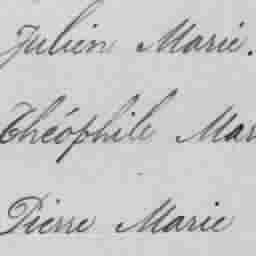 Julien Marie.
Théophile Mar
Pierre Marie